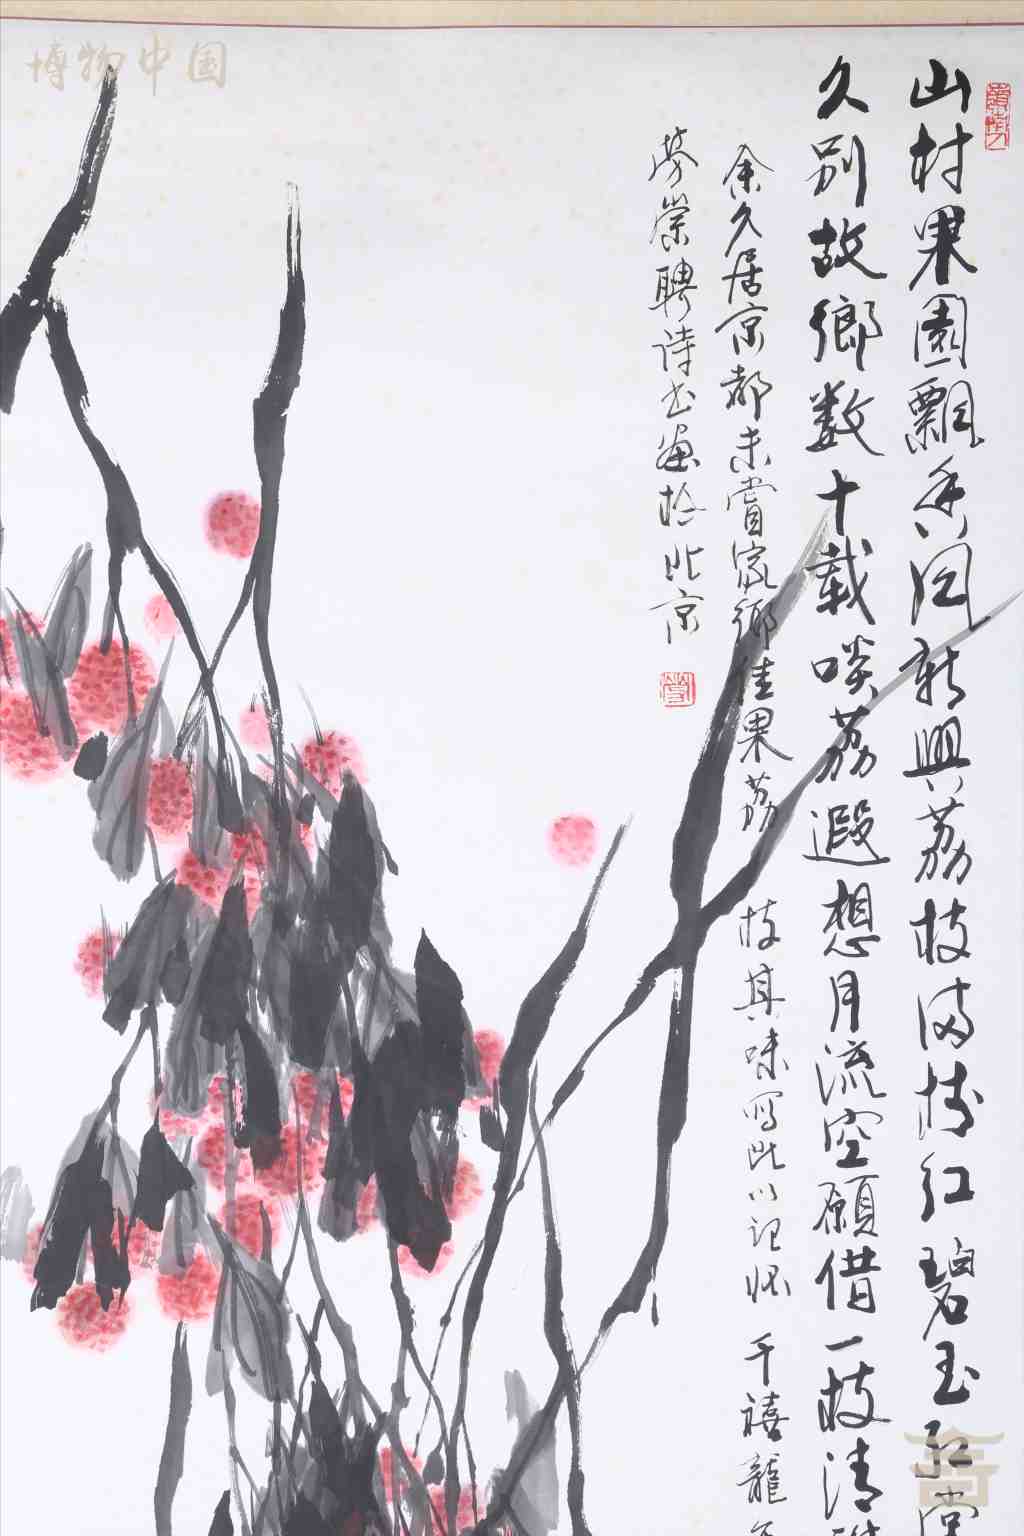 山村果園飄香風新興荔枝滿樹紅碧玉
久别故鄉数十載啖荔遐想月流空願借一枝清
余久居京都未嘗家鄉佳果荔枝其味寫此以記怀 千禧龍
劳崇聘诗书画於北京
博物中国